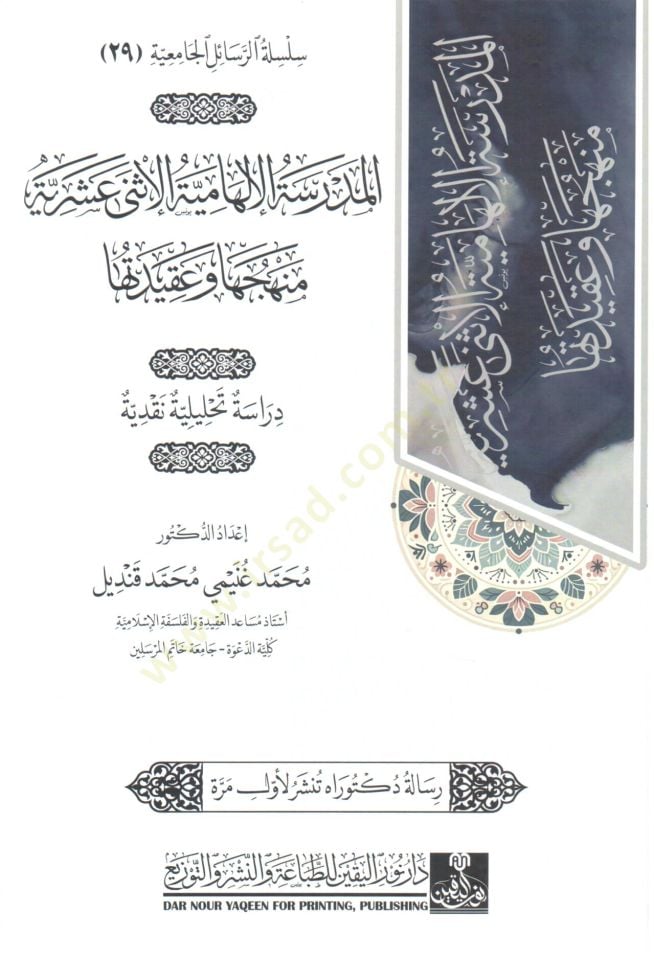 سِلْسِلَةُ الرَّسَائِلِ الجَامِعِيَّةِ (٢٩)
المَدْرَسَةُ الإِلْهَامِيَّةُ الإِثْنَى عَشَرِيَّة
مَنْهَجُهَا وَعَقِيدَتُهَا
دِرَاسَةٌ تَحْلِيلِيَّةٌ نَقْدِيَّةٌ
إِعْدَادُ الدُّكْتُور
مُحَمَّد غُنَيْمِي مُحَمَّد قَنْدِيل
أُسْتَاذ مُسَاعِد العَقِيدَةِ وَالفَلْسَفَةِ الإِسْلَامِيَّةِ
كُلِّيَّة الدَّعْوَة - جَامِعَة خَاتَمِ المُرْسَلِين
المَدْرَسَةُ الإِلْهَامِيَّةُ الإِثْنَى عَشَرِيَّة
مَنْهَجُهَا وَعَقِيدَتُهَا
رِسَالَةُ دُكْتُورَاه تُنْشَرُ لِأَوَّلِ مَرَّة
دَارُ نُورِ اليَقِينِ لِلطِّبَاعَةِ وَالنَّشْرِ وَالتَّوْزِيع
DAR NOUR YAQEEN FOR PRINTING, PUBLISHING
نور اليقين